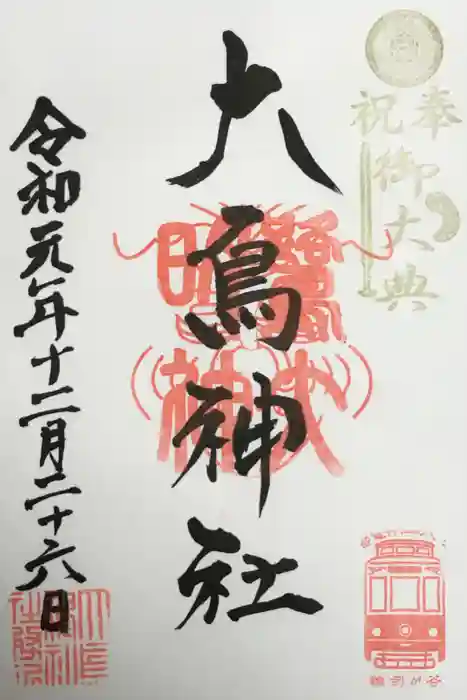 奉祝
御大典
大鳥神社
令和元年十二月二十六日
雑司が谷